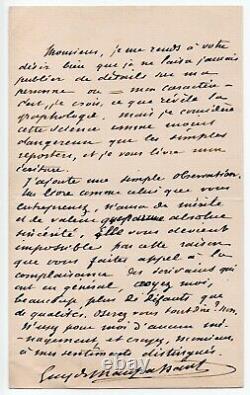 Monsieur, je me rends à votre
désir bien que je ne laisse jamais
publier de détails sur ma
personne ou = mon caractère
c'est, je crois, ce que révèle la
graphologie. mais je considère
cette science comme moins
dangereuse que les simples
reporters, et je vous livre mon
écriture.
J'ajoute une simple observation.
Un livre comme celui que vous
entreprenez, n'aura de mérite
et de valeur que par une absolue
sincérité, Elle vous devient
impossible par cette raison
que vous faites appel à la
complaisance des écrivains qui
ont en général, croyez moi,
beaucoup plus de défauts que
de qualités. Oserez vous tout dire? Non.
N'ayez pour moi d'aucun mé-
nagement, et croyez, monsieur,
à mes sentiments distingués.
Guy de Maupassant